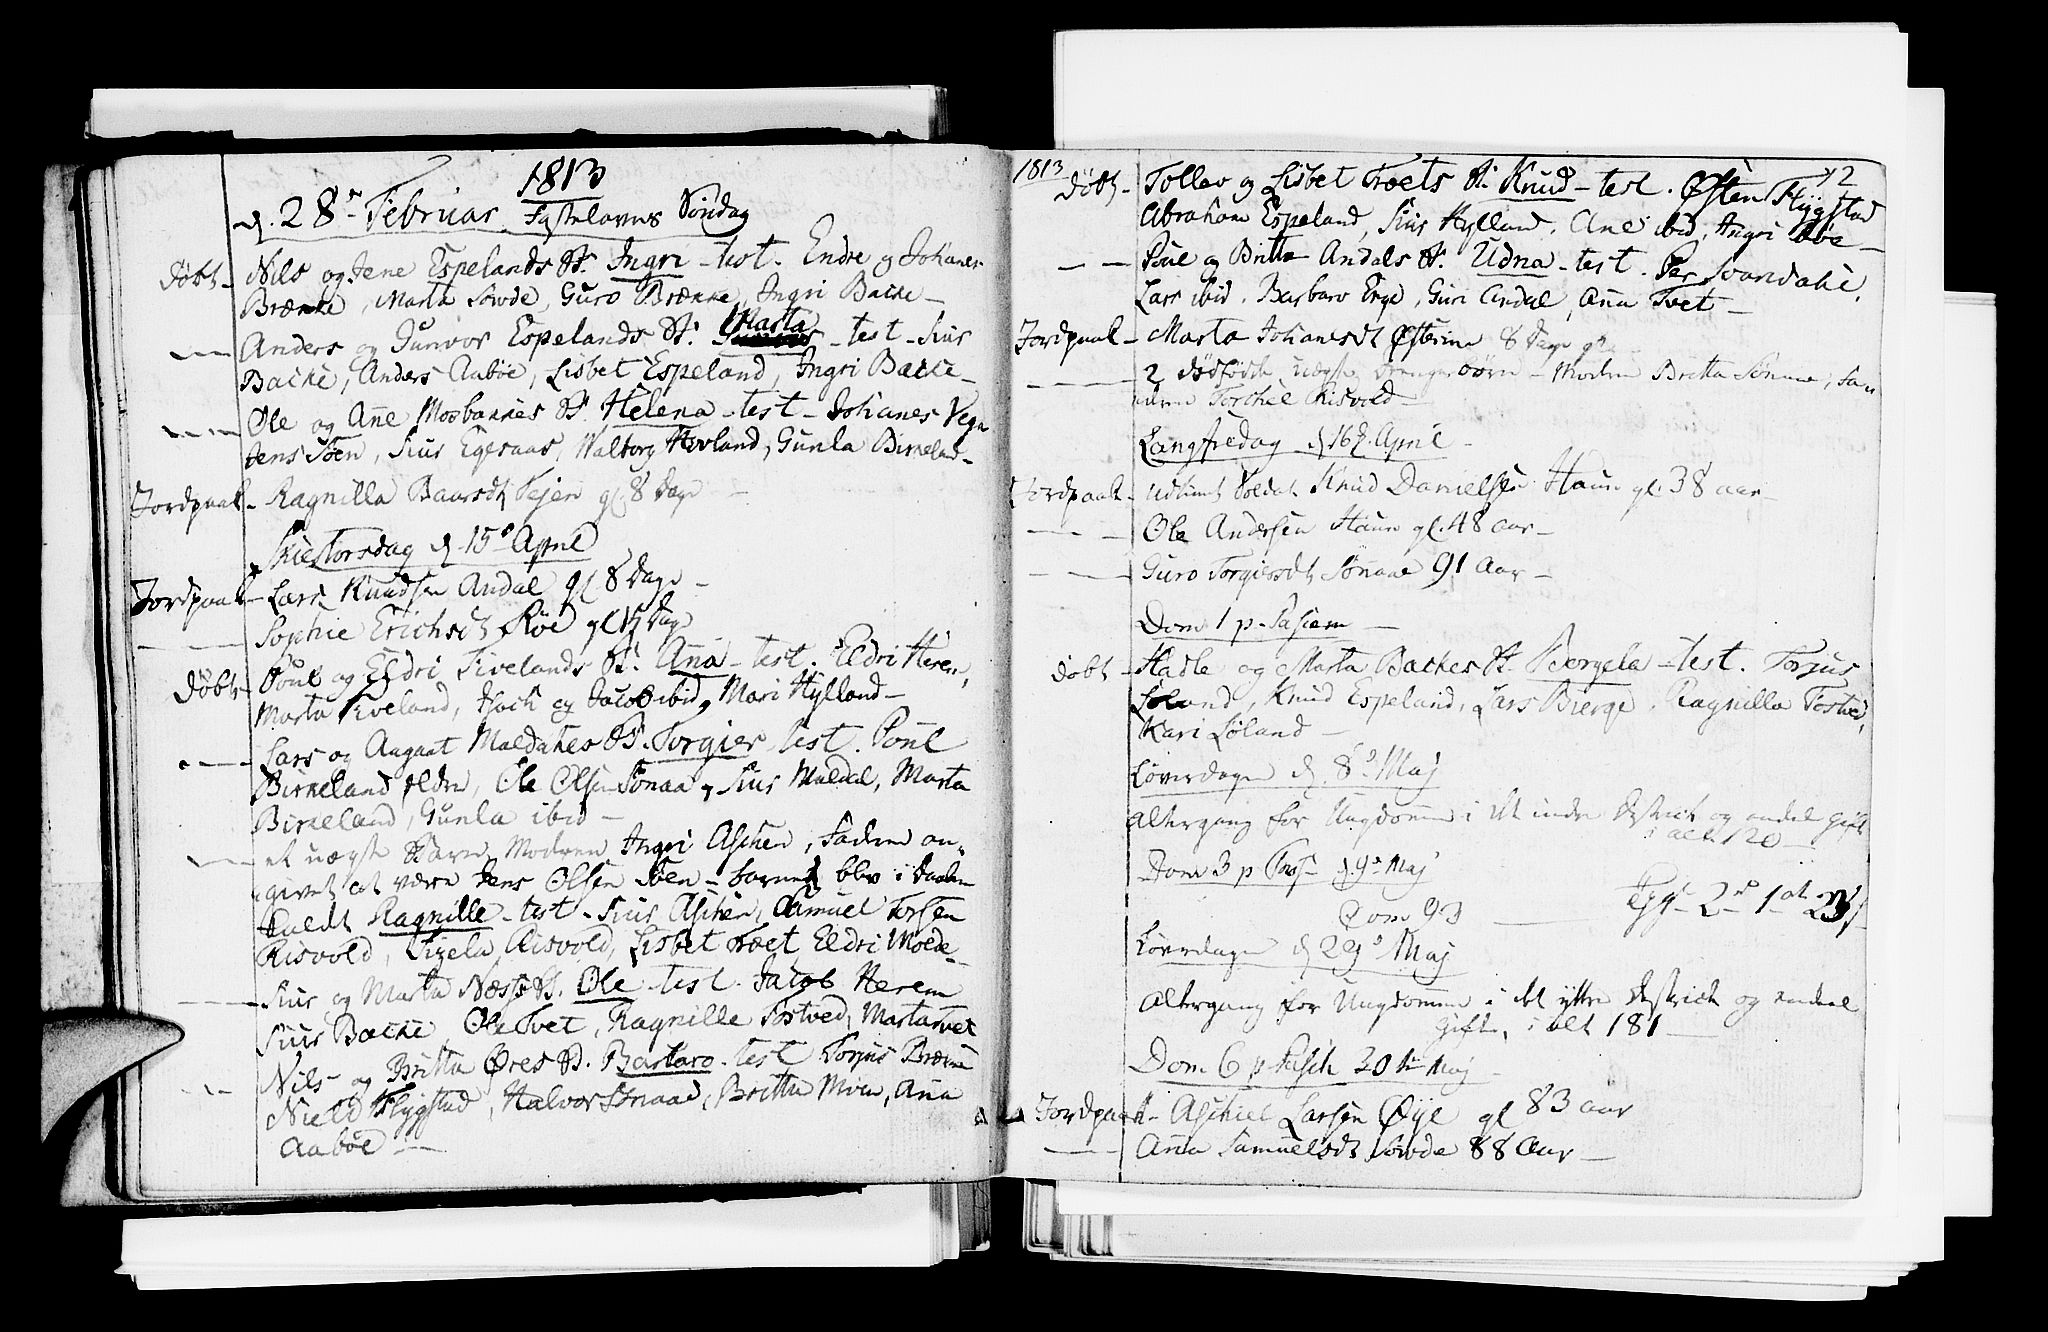 1813
d. 28de Februar Fastelavns Søndag
Døbt - Nils og Jene Espelands B. Ingri - test. Endre g Johanes
Brække, Marta Sowde, Guro Brække, Ingri Bakke -
Anders og Gunvor Espelands B: Marta - test - Siur
Bakke, Anders Aabøe, Lisbet Espeland, Ingri Bakke -
Ole og Ane Mosbakkes B. Helena - test - Johanes Vega
Jens Søen, Siur Egeraas, Walborg Hovland, Gunla Birkeland -
Jordpaak - Ragnilla Baarsdt Tejen gl. 8 Dage -
Skiertorsdag d. 15de April
Jordpaak - Lars Knudsen Andal gl 8 Dage -
Sophie Erichsdt Røe gl. Dage
Døbt - Poul og Eldri Tivelands B. Ana - test. Eldri Herem,
Marta Tiveland, Isach og Jacob ibid, Mari Hylland -
Lars og Aagaat Maldakes B. Torgier test. Poul
Birkeland eldre, Ole Olsen Sønaa, Siur Maldal, Marta
Birkeland, Gunla ibid -
et uægte Barn, Modren Ingri Aschen, Fadren an-
givet at være Jens Olsen Søen - barnet blev i Daaben
kaldt Ragnille - test - Siur Aschen, Samuel Torsen
Risvold, Sigela Risvold, Lisbet Træt Eldri Molde -
Siur og Marta Næss B. Ole - test. Jacob Herem
Siur Bakke Ole Tvet, Ragnille Tostved, Marta Tvet
Nils og Britta Øres B. Barbaro - test Torjus Brække
Niels Flygstad, Halvor Sønaae, Britta Moen, Ana
Aabøe -
1813
Døbt - Tollev og Lisbet Træts B. Knud - test. Østen Flygstad
12
Abraham Espeland, Siur Hylland, Ane ibid, Angri Bøe -
Poul og Britta Andals B. Udna - test. Per Svandahl,
Lars ibid. Barbaro Erge, Guri Andal, Ana Tvet -
Jordpaak - Marta Johanesdt Østeime 8 Dage gl.
2 dødfødte uægte Drengebørn - Modren Britta Sønnae, Fa-
deren Torchel Risvold -
Langfredag d. 16de April -
Jordpaak - Udtient Soldat Knud Danielsen Haue gl. 38 aar -
Ole Andersen Haue gl. 48 aar -
Guro Torgiersdt Sønnae 91 Aar -
Dom 1 p. Pasicam -
døbt - Hadle og Marta Backes B. Bergela - test. Torjus
Løland, Knud Espeland, Lars Bierge, Ragnilla Tostved,
Kari Løland -
Løverdagen d. 8de Maj
Altergang for Ungdommen i det indre Destrict og endel gifte
i alt 120 -
Dom 3 p Pas. d. 9de Maj
Com 93
Løverdagen d 29de Maj
Altergang for Ungdommen i det yttre Destrict og endeel
gifte, i alt 181 -
Dom 6 p Pasch 30te Maj -
Jordpaak - Aschiel Larsen Øye gl 83 aar
Ana Samuelsdt Sowde 88 Aar -